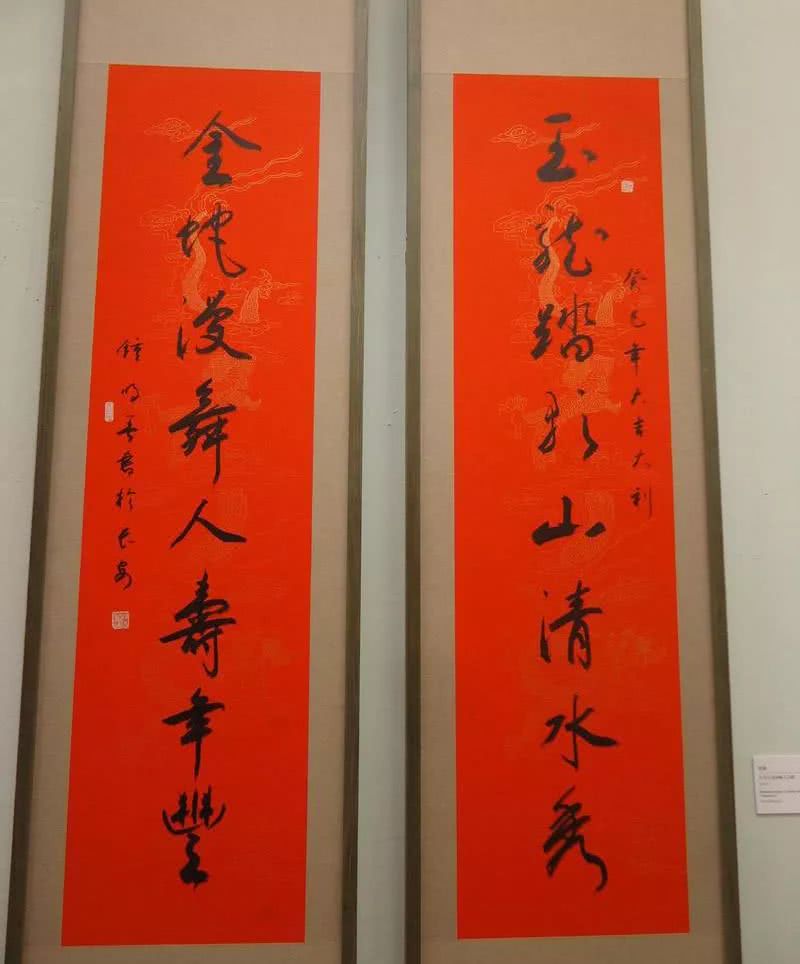 癸巳年大吉大利
玉龍踏歌山清水秀
金蛇漫舞人壽年豐
鐘明善書於長安